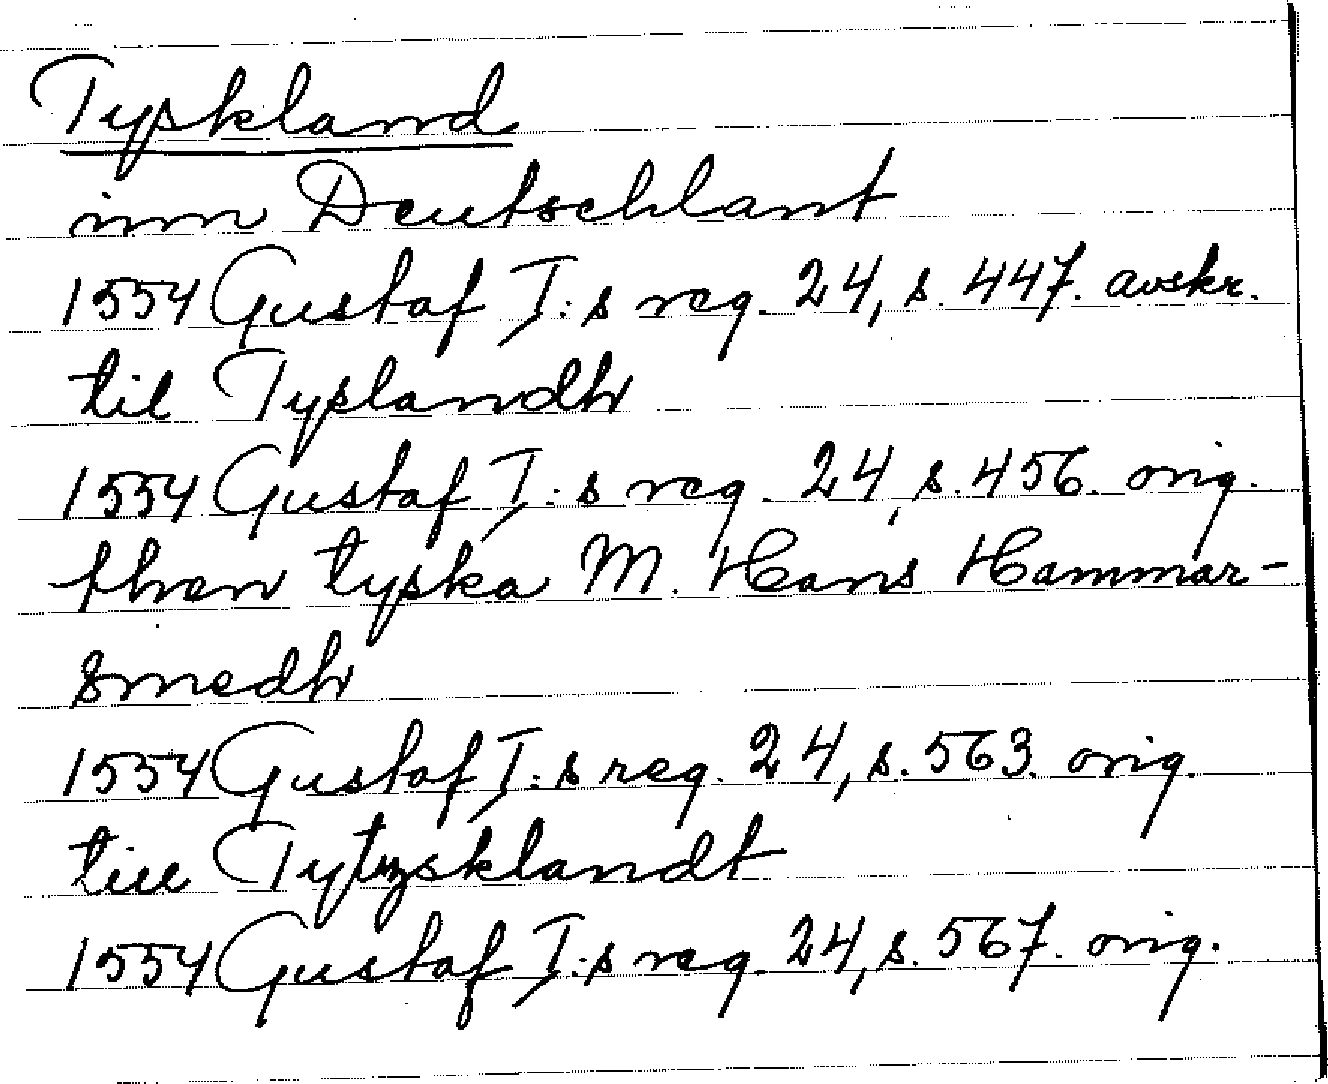 Tyskland
inn Deutschlant
1554 Gustaf I:s reg. 24, s. 447. avskr.
til Tyslandh
1554 Gustaf I:s reg. 24, s. 456. orig.
then tyska M. Hans Hammar-
smedh
1554 Gustaf I:s reg. 24, s. 563. orig.
till Tytzsklandt
1554 Gustaf I:s reg. 24, s. 567. orig.